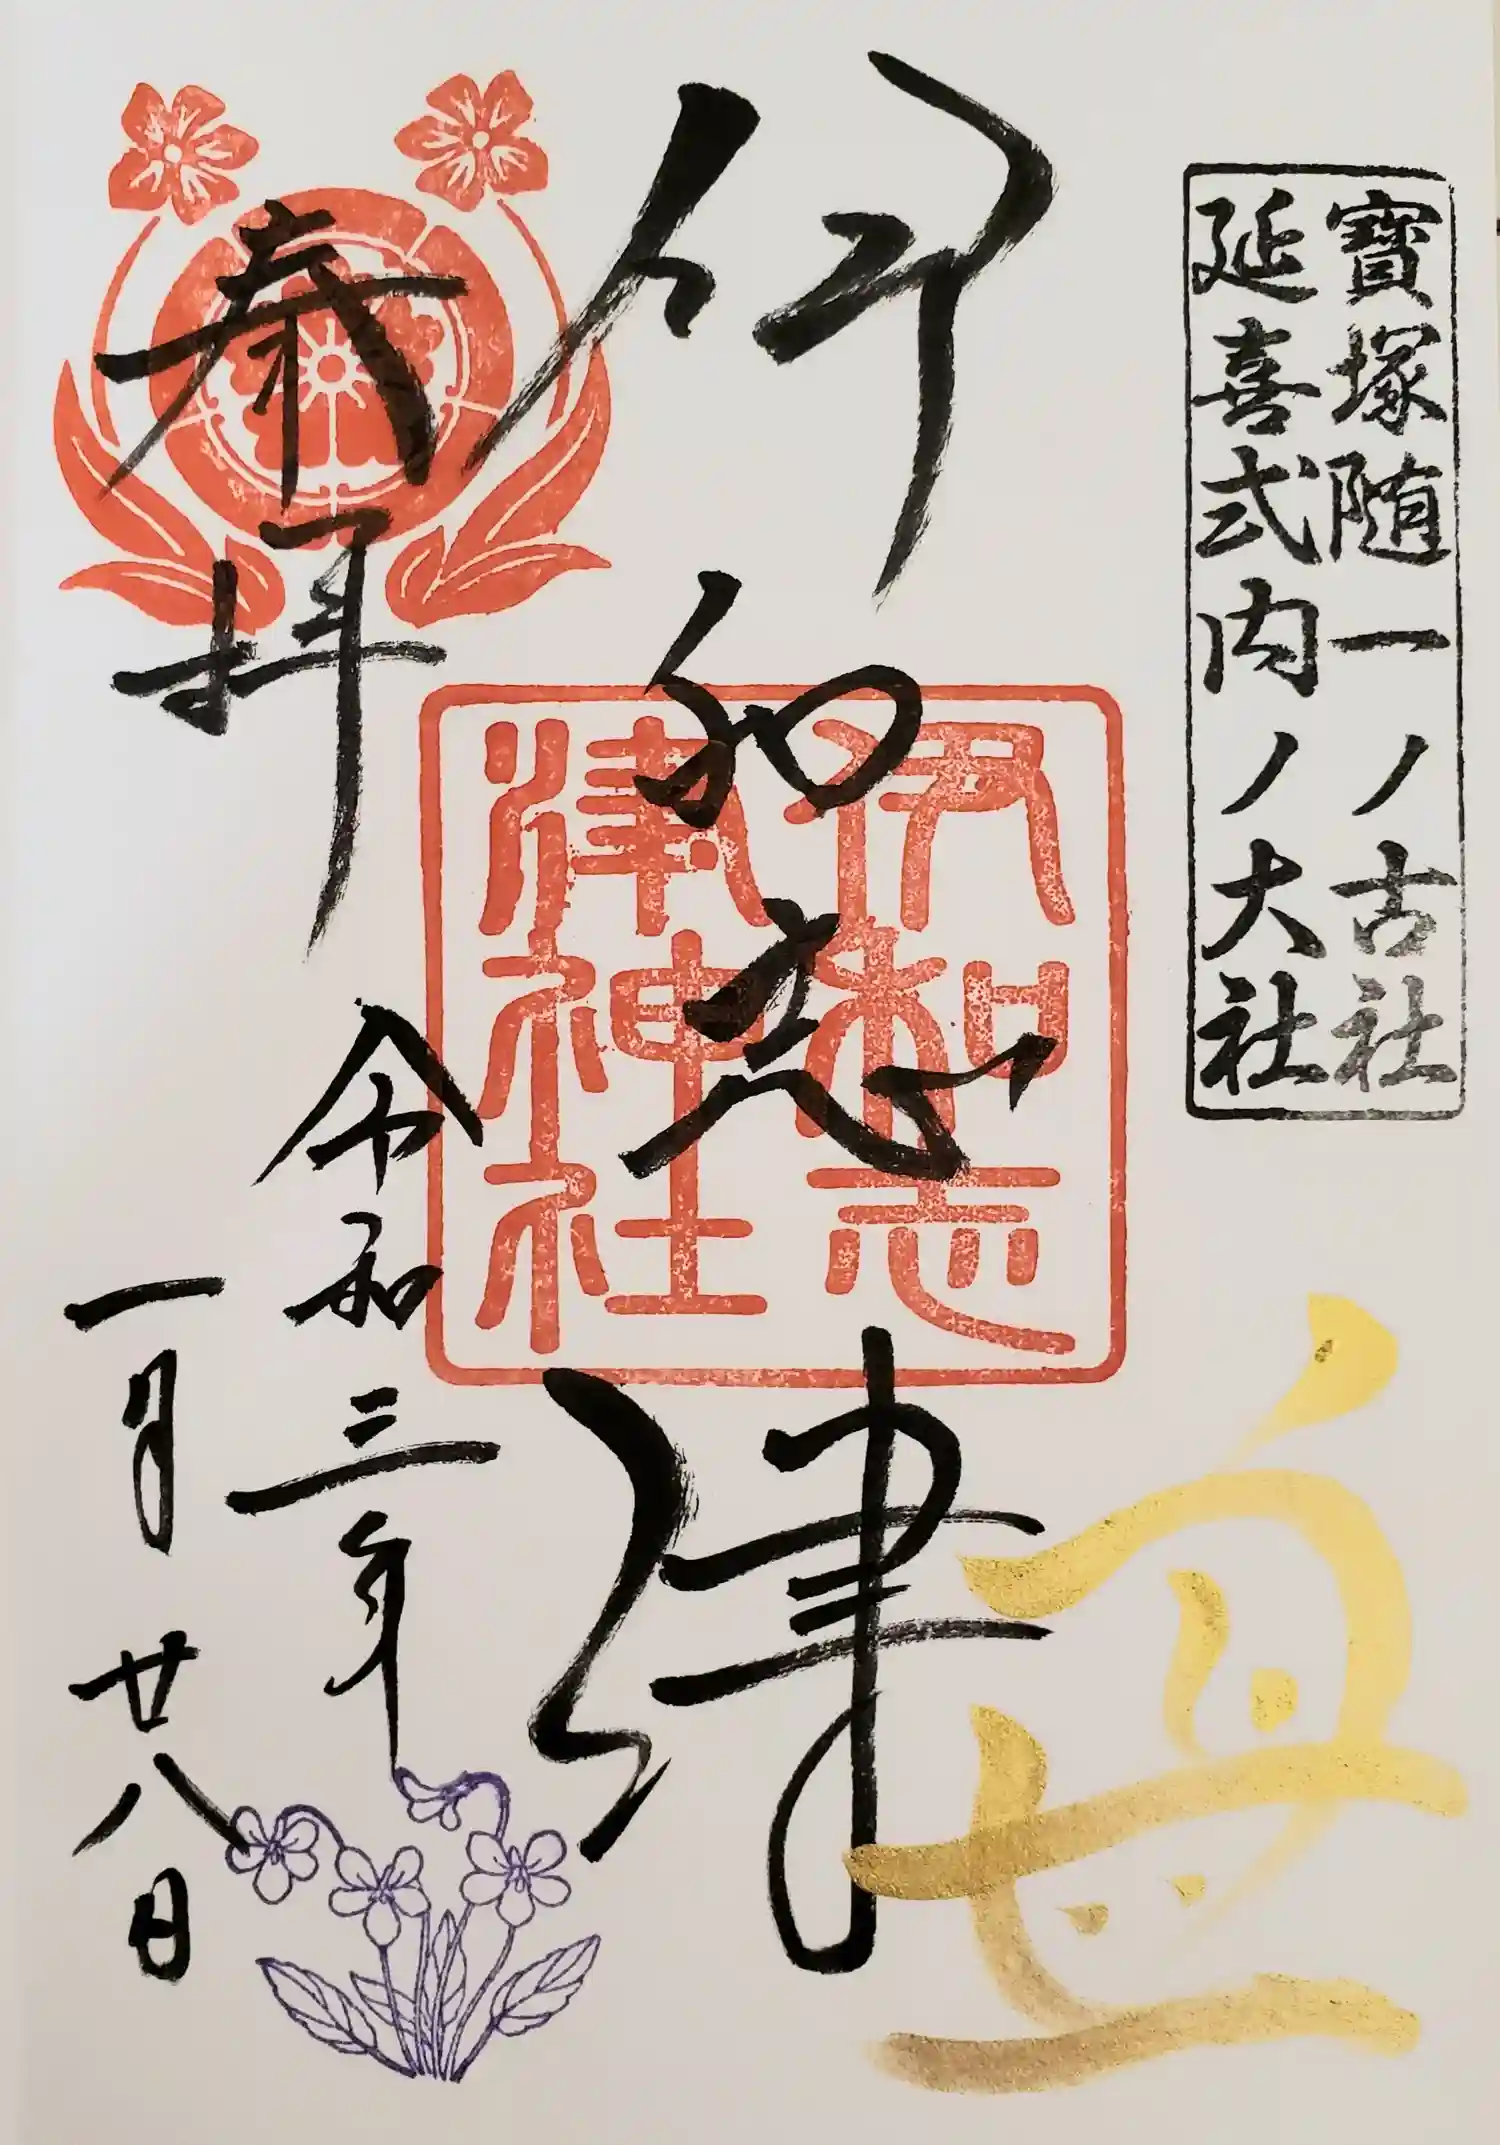 寶塚随一ノ古社
延喜式内ノ大社
伊和志津
伊和志
津神社
奉拝
令和三年
一月廿八日